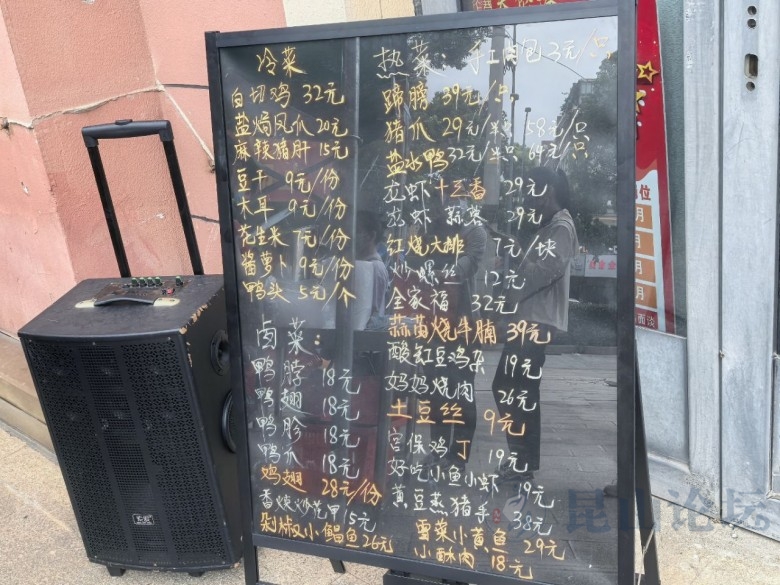 冷菜
白切鸡 32元
盐焗凤爪 20元
麻辣猪肝 15元
豆干 9元/份
木耳 9元/份
花生米 7元/份
酱萝卜 9元/份
鸭头 5元/个
卤菜:
鸭脖 18元
鸭翅 18元
鸭胗 18元
鸭爪 18元
鸡翅 28元/份
香辣炒花甲 15元
剁椒小鲳鱼 26元
热菜 手工肉包 3元/只
蹄膀 39元/只
猪爪 29元/半只 58元/只
盐水鸭 32元/半只 64元/只
龙虾 十三香 29元
龙虾 蒜蓉 29元
红烧大排 7元/块
炒螺丝 12元
全家福 32元
蒜苗烧牛腩 39元
酸豇豆鸡杂 19元
妈妈烧肉 26元
土豆丝 9元
宫保鸡丁 19元
好吃小鱼小虾 19元
黄豆蒸猪手 38元
雪菜小黄鱼 29元
小酥肉 18元
位
月
月
月
月
面谈
昆山论坛